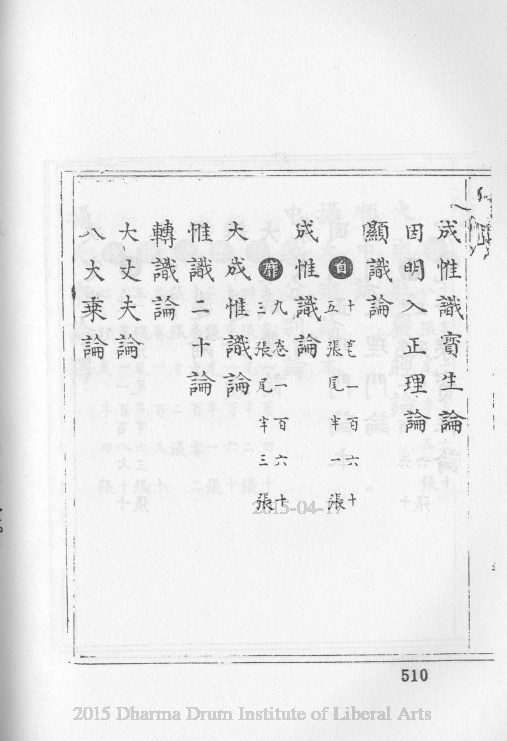 成惟識寶生論
因明入正理論
顯識論
自 十卷一百六十五張尾半一張
成惟識論
靡 九卷一百六十三張尾半三張
大成惟識論
惟識二十論
轉識論
大丈夫論
八大乘論
510
2015-04-17
2015 Dharma Drum Institute of Liberal Arts